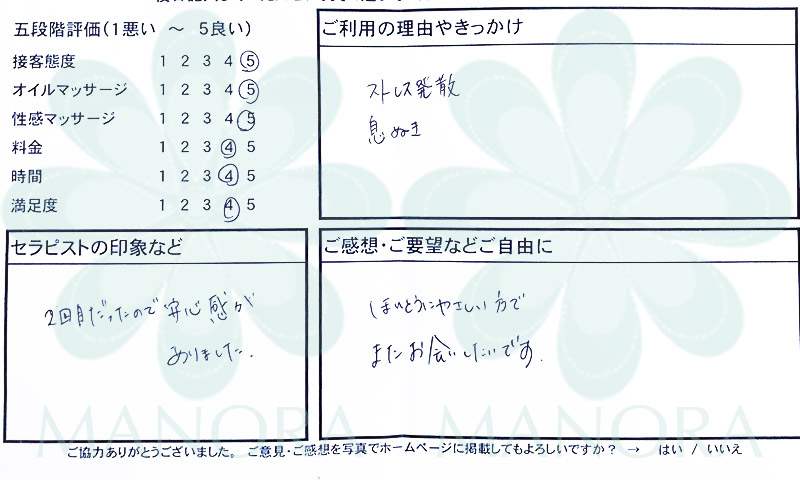 五段階評価(1悪い ～ 5良い)
接客態度 1 2 3 4 5
オイルマッサージ 1 2 3 4 5
性感マッサージ 1 2 3 4 5
料金 1 2 3 4 5
時間 1 2 3 4 5
満足度 1 2 3 4 5
ご利用の理由やきっかけ
ストレス発散
息ぬき
セラピストの印象など
2回目だったので安心感が
ありました.
ご感想・ご要望などご自由に
ほんとうにやさしい方で
またお会いしたいです.
MANORA MANORA
ご協力ありがとうございました。 ご意見・ご感想を写真でホームページに掲載してもよろしいですか? → はい / いいえ